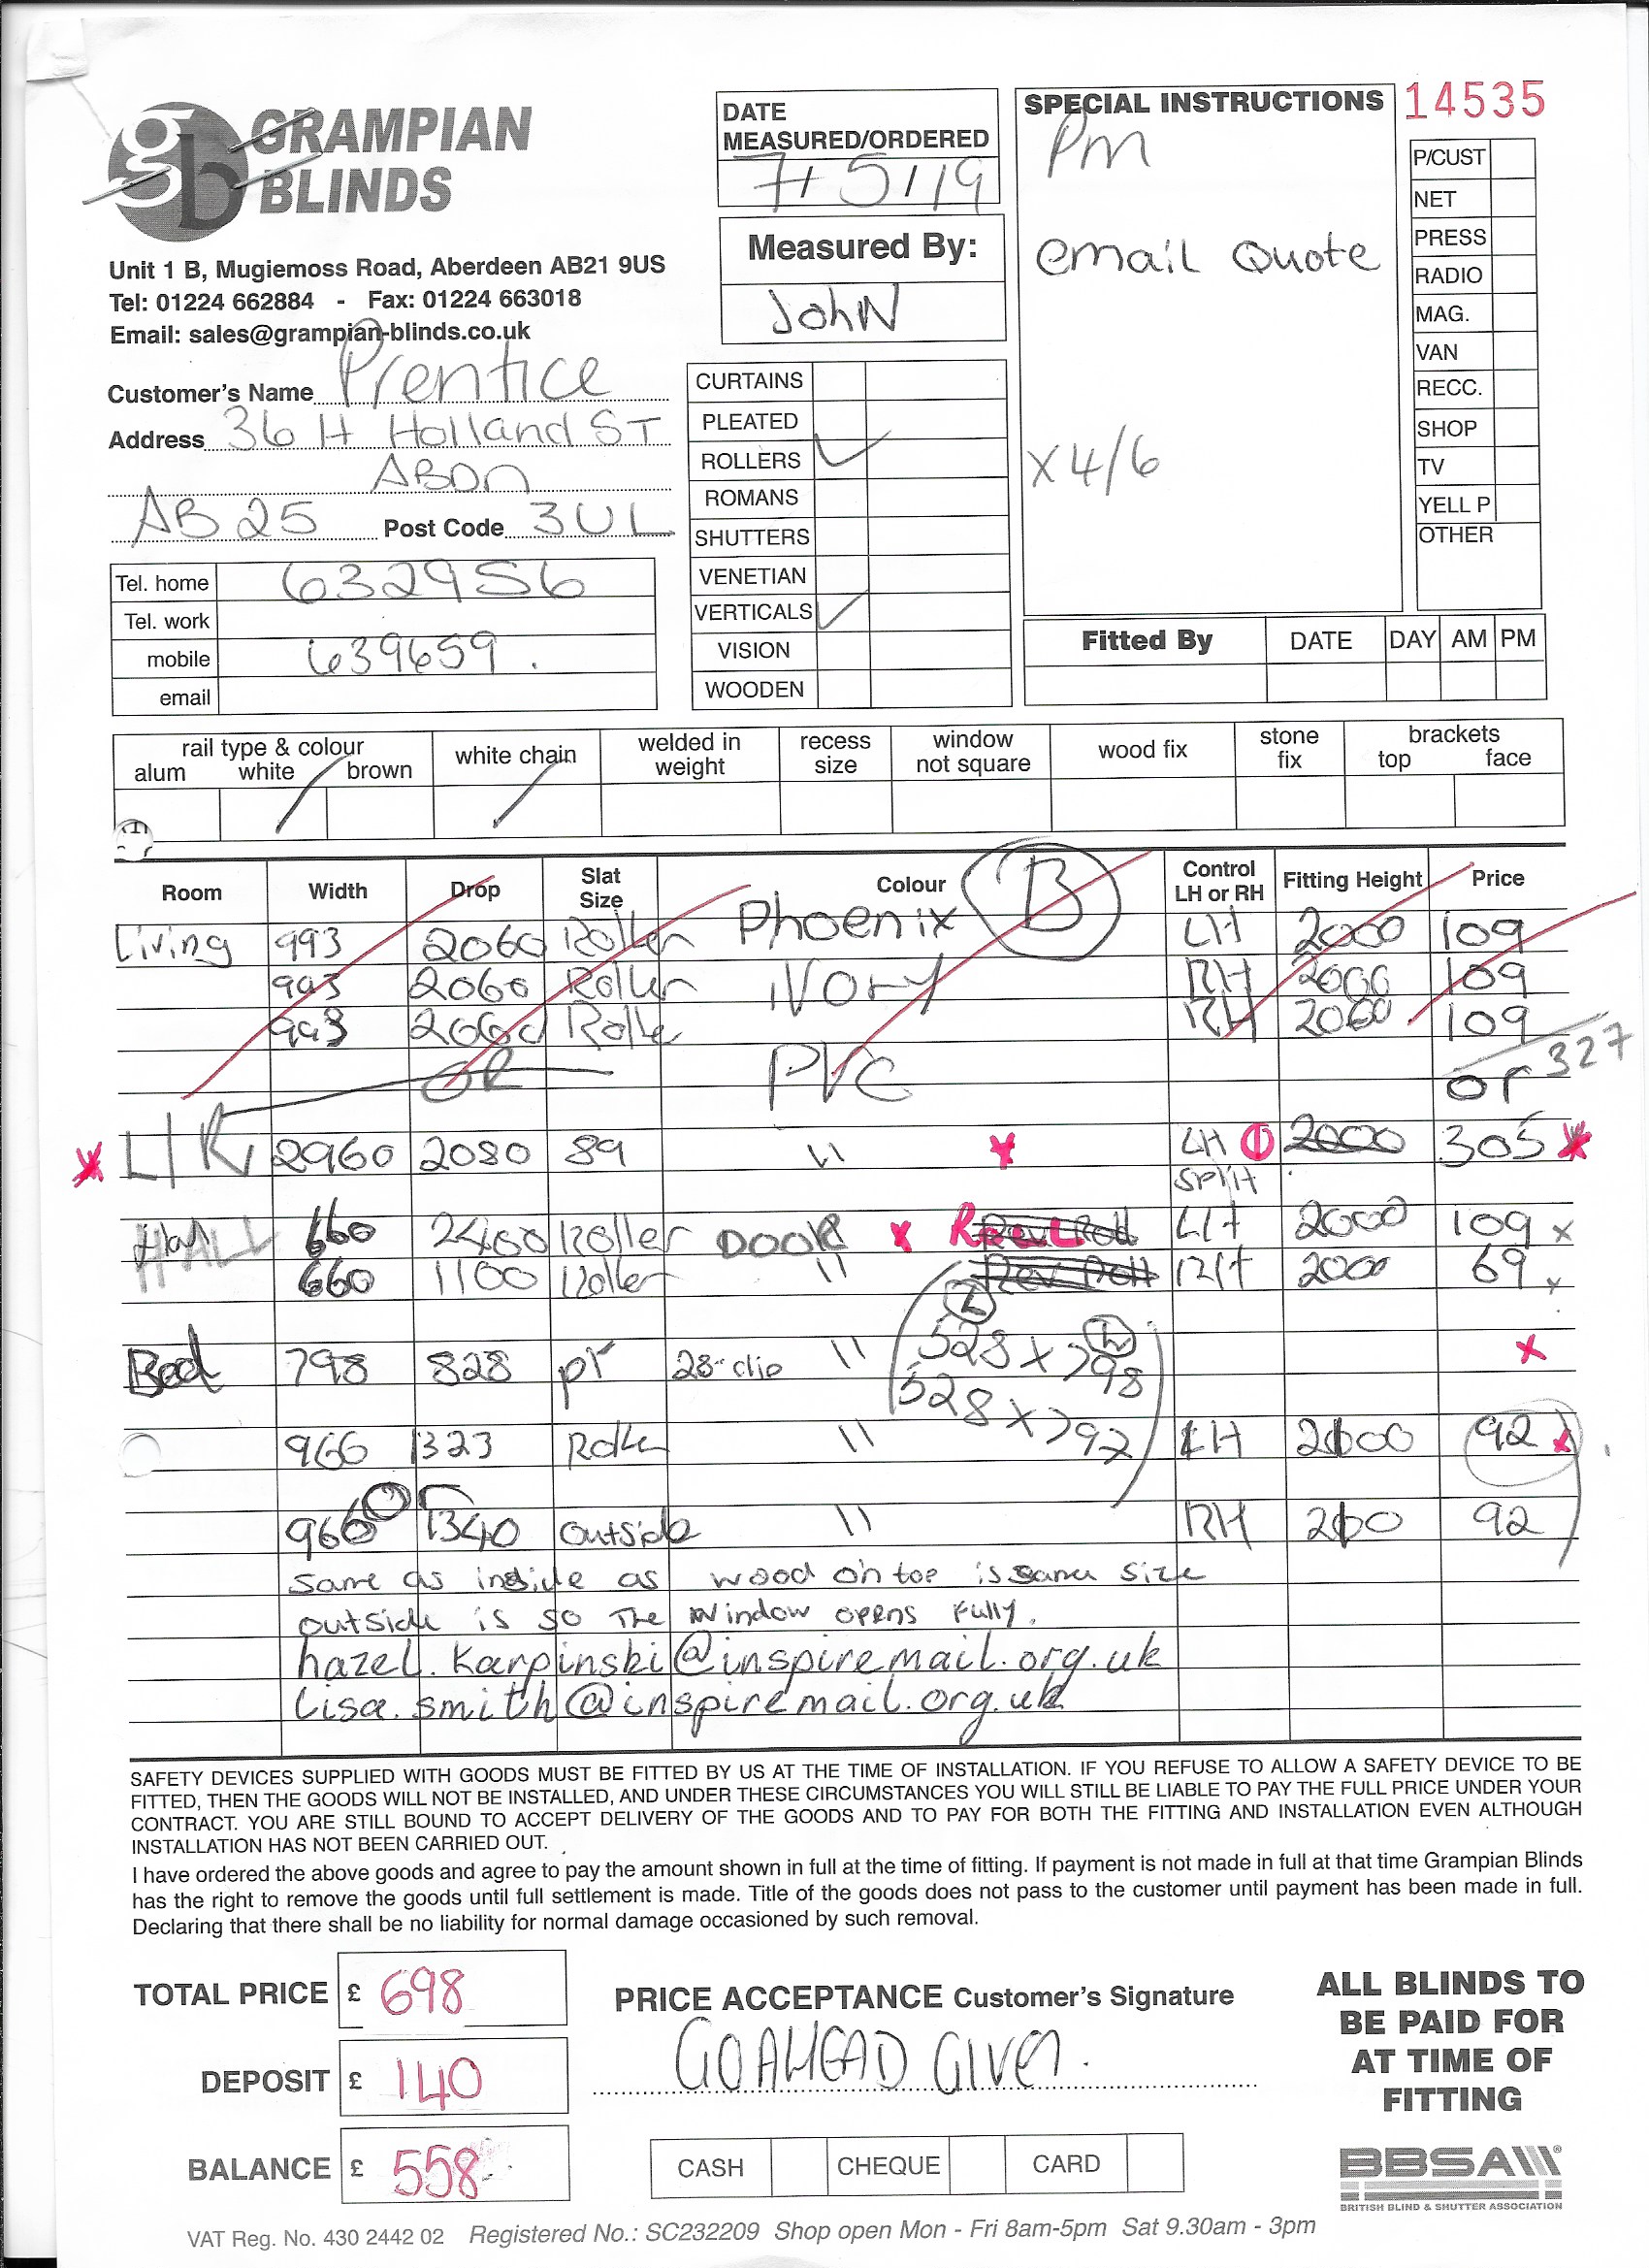 GRAMPIAN BLINDS
Unit 1 B, Mugiemoss Road, Aberdeen AB21 9US
Tel: 01224 662884 - Fax: 01224 663018
Email: sales@grampian-blinds.co.uk
Customer's Name Prentice
Address 36 H Holland ST
ABDN
AB25 Post Code 3UL
Tel. home 632956
Tel. work
mobile 639659.
email
DATE MEASURED/ORDERED
7/5/19
Measured By:
John
CURTAINS
PLEATED
ROLLERS
ROMANS
SHUTTERS
VENETIAN
VERTICALS
VISION
WOODEN
SPECIAL INSTRUCTIONS
Pm
email Quote
x4/6
14535
P/CUST
NET
PRESS
RADIO
MAG.
VAN
RECC.
SHOP
TV
YELL P
OTHER
Fitted By DATE DAY AM PM
rail type & colour
alum white brown
white chain
welded in weight
recess size
window not square
wood fix
stone fix
brackets
top face
Room Width Drop Slat Size Colour B Control LH or RH Fitting Height Price
Living 993 2060 Roller Phoenix LH 2000 109
993 2060 Roller Ivory RH 2000 109
993 2060 Roller RH 2000 109
OR PVC or 327
x L/R 2960 2080 89 " x LH 1 2000 305 x
split
HALL 660 2400 Roller DOOR x LH 2000 109 x
660 1100 Roller " Rev Roll RH 2000 69 x
L
528 x 798 x
Bed 798 828 pr 28-clip "
528 x 792
966 1323 Roller " LH 2100 92 x
966 1340 outside " RH 2100 92
same as inside as wood on top is same size
outside is so the window opens fully.
hazel.karpinski@inspiremail.org.uk
lisa.smith@inspiremail.org.uk
SAFETY DEVICES SUPPLIED WITH GOODS MUST BE FITTED BY US AT THE TIME OF INSTALLATION. IF YOU REFUSE TO ALLOW A SAFETY DEVICE TO BE
FITTED, THEN THE GOODS WILL NOT BE INSTALLED, AND UNDER THESE CIRCUMSTANCES YOU WILL STILL BE LIABLE TO PAY THE FULL PRICE UNDER YOUR
CONTRACT. YOU ARE STILL BOUND TO ACCEPT DELIVERY OF THE GOODS AND TO PAY FOR BOTH THE FITTING AND INSTALLATION EVEN ALTHOUGH
INSTALLATION HAS NOT BEEN CARRIED OUT.
I have ordered the above goods and agree to pay the amount shown in full at the time of fitting. If payment is not made in full at that time Grampian Blinds
has the right to remove the goods until full settlement is made. Title of the goods does not pass to the customer until payment has been made in full.
Declaring that there shall be no liability for normal damage occasioned by such removal.
TOTAL PRICE £ 698
DEPOSIT £ 140
BALANCE £ 558
PRICE ACCEPTANCE Customer's Signature
GOAHEAD GIVEN.
CASH CHEQUE CARD
ALL BLINDS TO
BE PAID FOR
AT TIME OF
FITTING
BBSA
BRITISH BLIND & SHUTTER ASSOCIATION
VAT Reg. No. 430 2442 02 Registered No.: SC232209 Shop open Mon - Fri 8am-5pm Sat 9.30am - 3pm